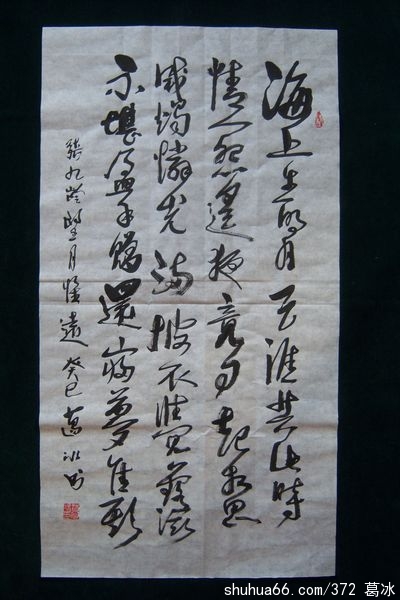 海上生明月天涯共此時
情人怨遙夜竟夕起相思
滅燭憐光滿披衣覺露滋
不堪盈手贈還寢夢佳期
張九齡望月懷遠 癸巳葛冰書
shuhua66.com/372 葛冰